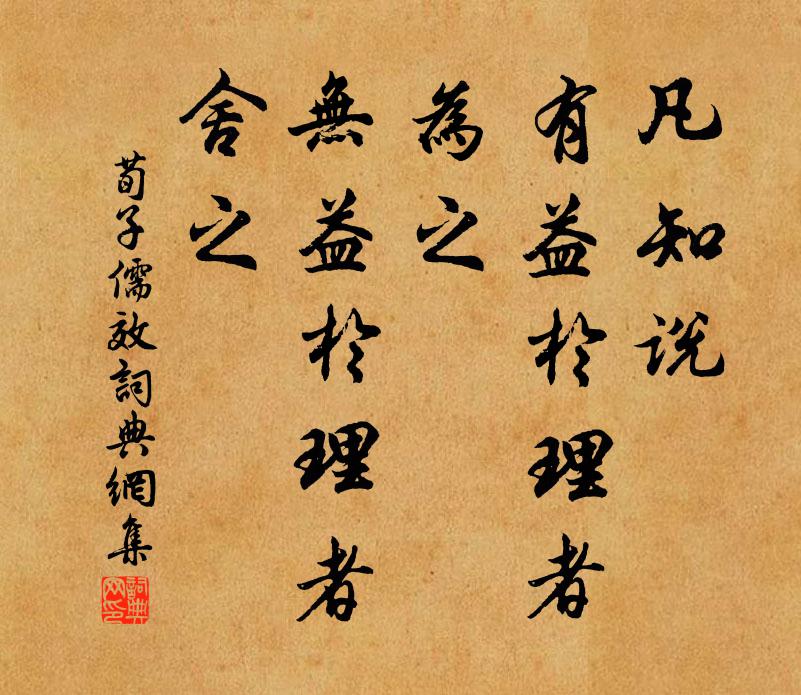 凡知说
有益於理者
為之
無益於理者
舍之
荀子儒效詞典網集
詞典
网印